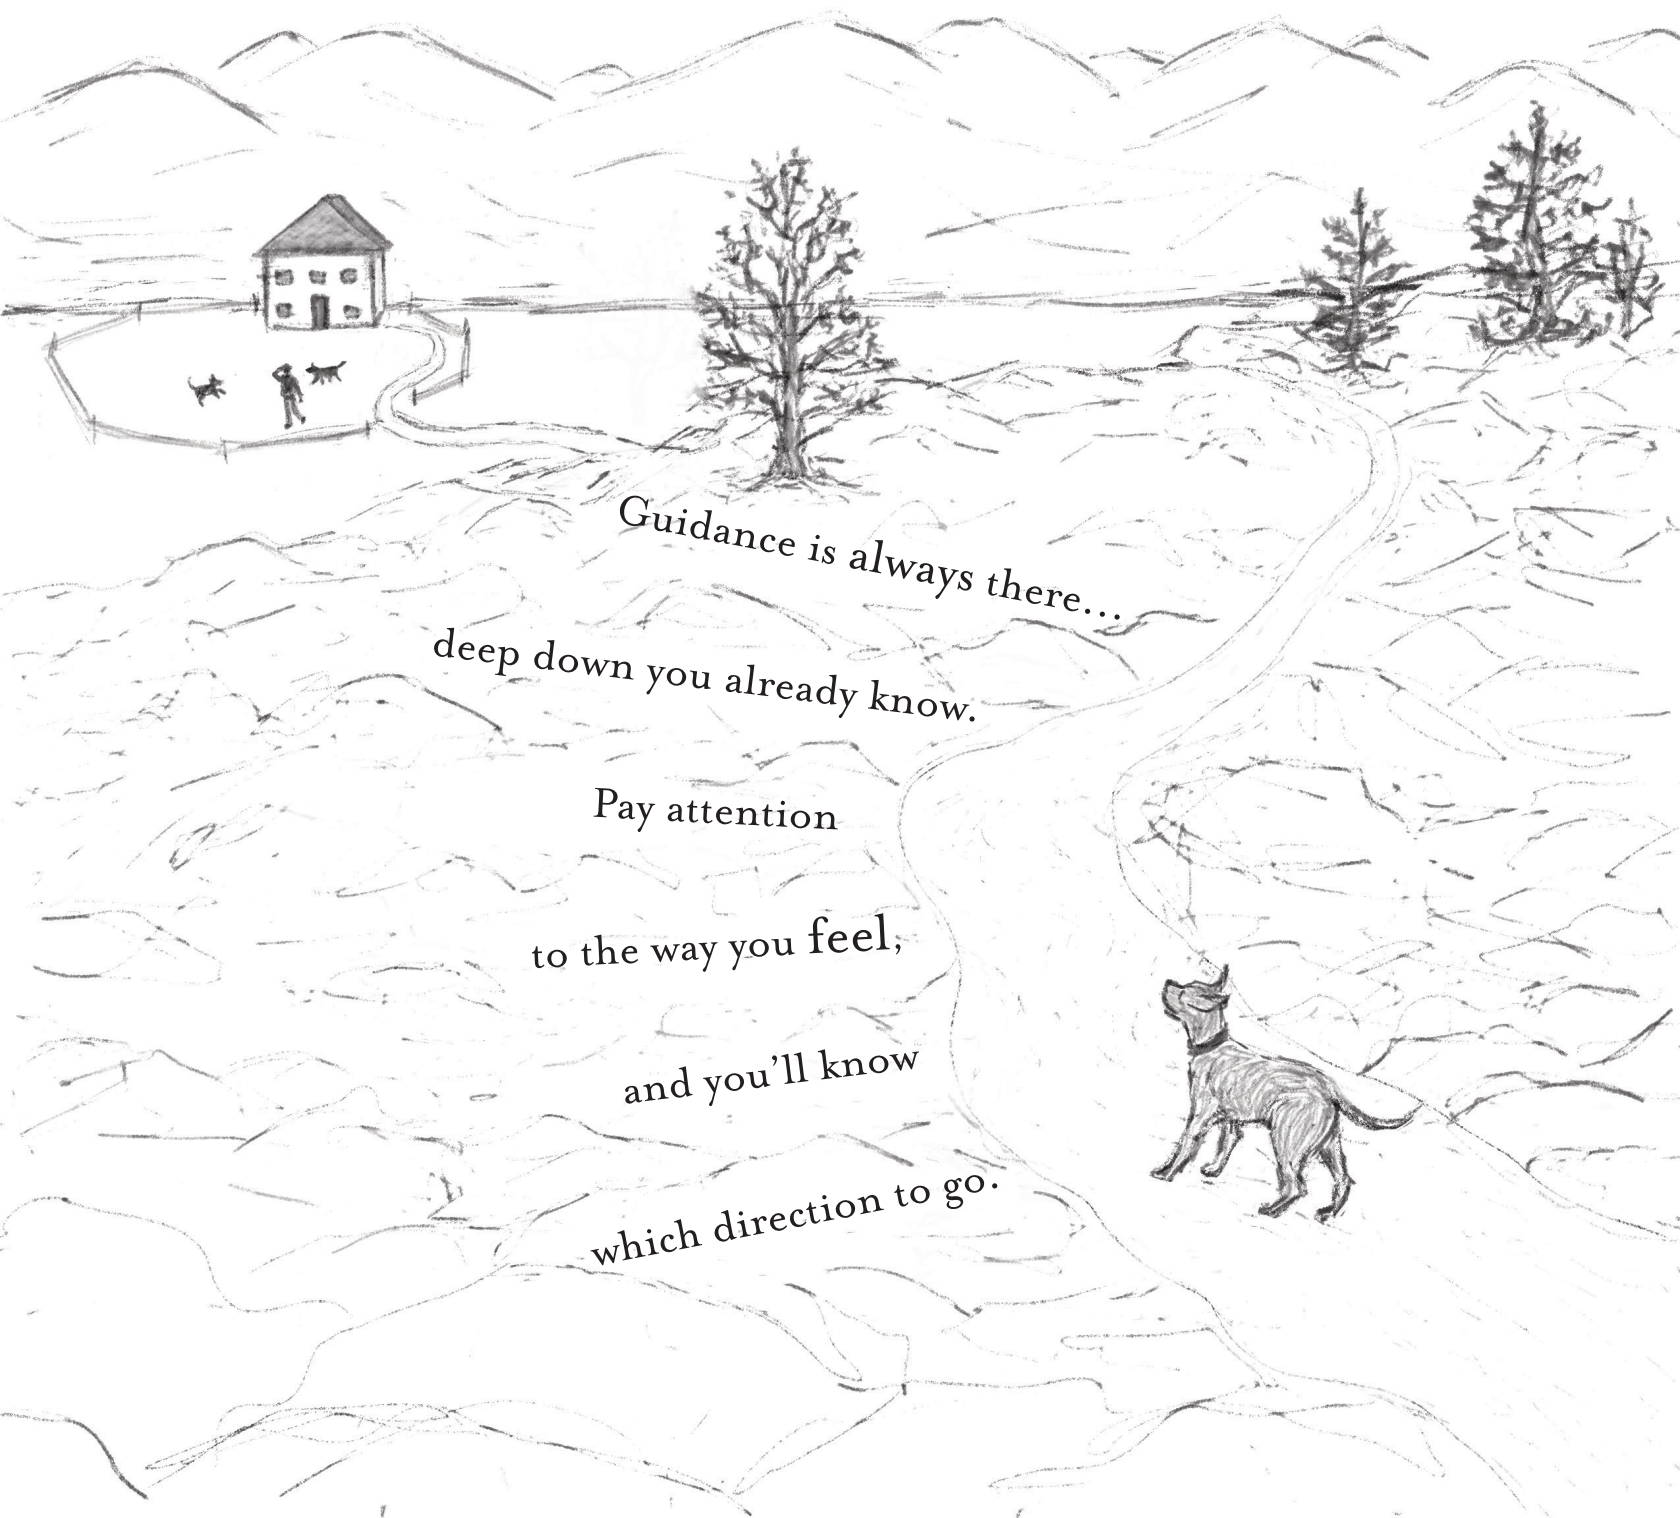 Guidance is always there...
deep down you already know.
Pay attention
to the way you feel,
and you’ll know
which direction to go.